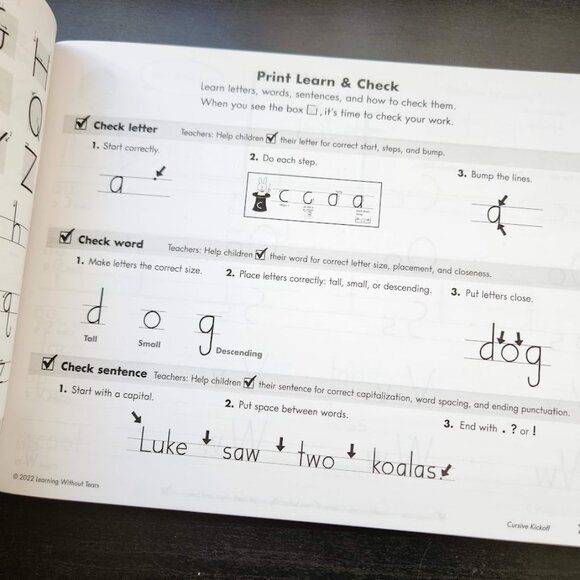 Print Learn & Check
Learn letters, words, sentences, and how to check them.
When you see the box □, it's time to check your work.
☑ Check letter Teachers: Help children ☑ their letter for correct start, steps, and bump.
1. Start correctly.
2. Do each step.
3. Bump the lines.
a
c c a a
C
a
☑ Check word Teachers: Help children ☑ their word for correct letter size, placement, and closeness.
1. Make letters the correct size.
2. Place letters correctly: tall, small, or descending.
3. Put letters close.
d o g
dog
Tall Small Descending
☑ Check sentence Teachers: Help children ☑ their sentence for correct capitalization, word spacing, and ending punctuation.
1. Start with a capital.
2. Put space between words.
3. End with . ? or !
Luke saw two koalas.
© 2022 Learning Without Tears
Cursive Kickoff
H
h
g